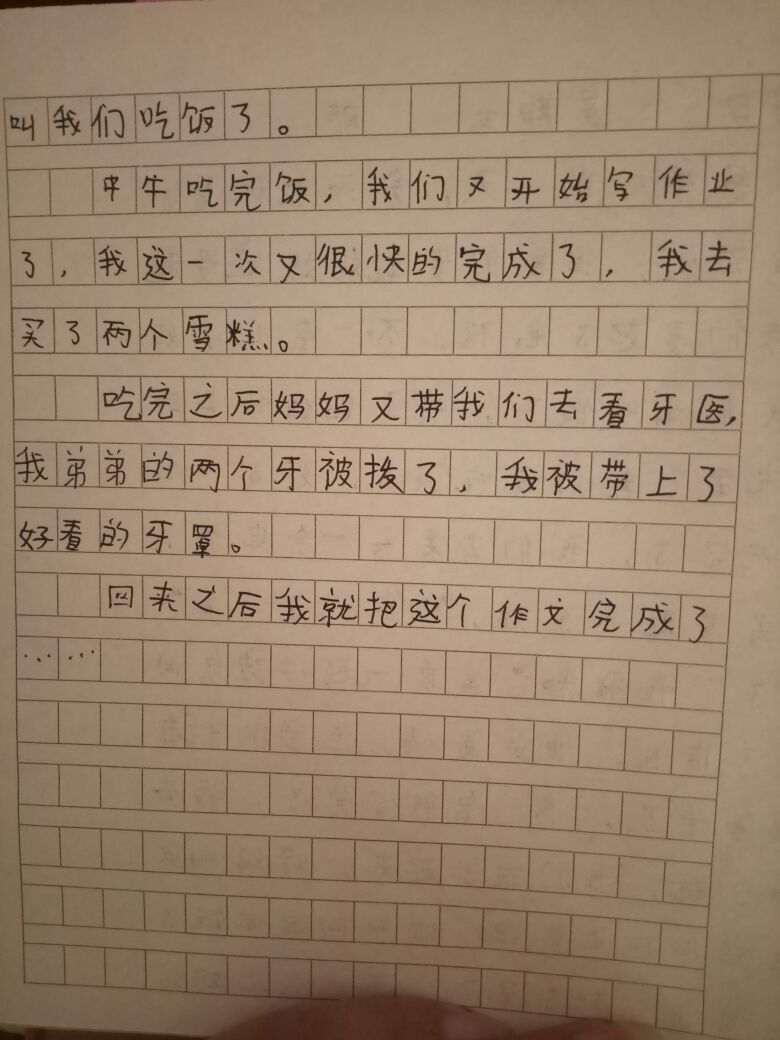 叫我们吃饭了。
中牛吃完饭，我们又开始写作业
了，我这一次又很快的完成了，我去
买了两个雪糕。
吃完之后妈妈又带我们去看牙医，
我弟弟的两个牙被拨了，我被带上了
好看的牙罩。
回来之后我就把这个作文完成了
……